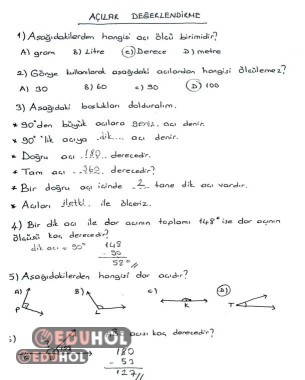 AÇILAR DEĞERLENDİRME
1) Aşağıdakilerden hangisi açı ölçü birimidir?
A) gram B) Litre C) Derece D) metre
2) Gönye kullanılarak aşağıdaki açılardan hangisi ölçülemez?
A) 30 B) 60 C) 90 D) 100
3) Aşağıdaki boşlukları dolduralım.
* 90°'den büyük açılara geniş açı denir.
* 90°'lik açıya ..dik... açı denir.
* Doğru açı ..180.. derecedir.
* Tam açı ..360.. derecedir.
* Bir doğru açı içinde ..2.. tane dik açı vardır.
* Açıları iletki... ile ölçeriz.
4) Bir dik açı ile dar açının toplamı 148° ise dar açının
ölçüsü kaç derecedir?
dik açı = 90° 148
- 90
58°
5) Aşağıdakilerden hangisi dar açıdır?
A) B) c) D)
P L K T
açısı kaç derecedir?
EDUHOL
EDUHOL
180
- 53
127